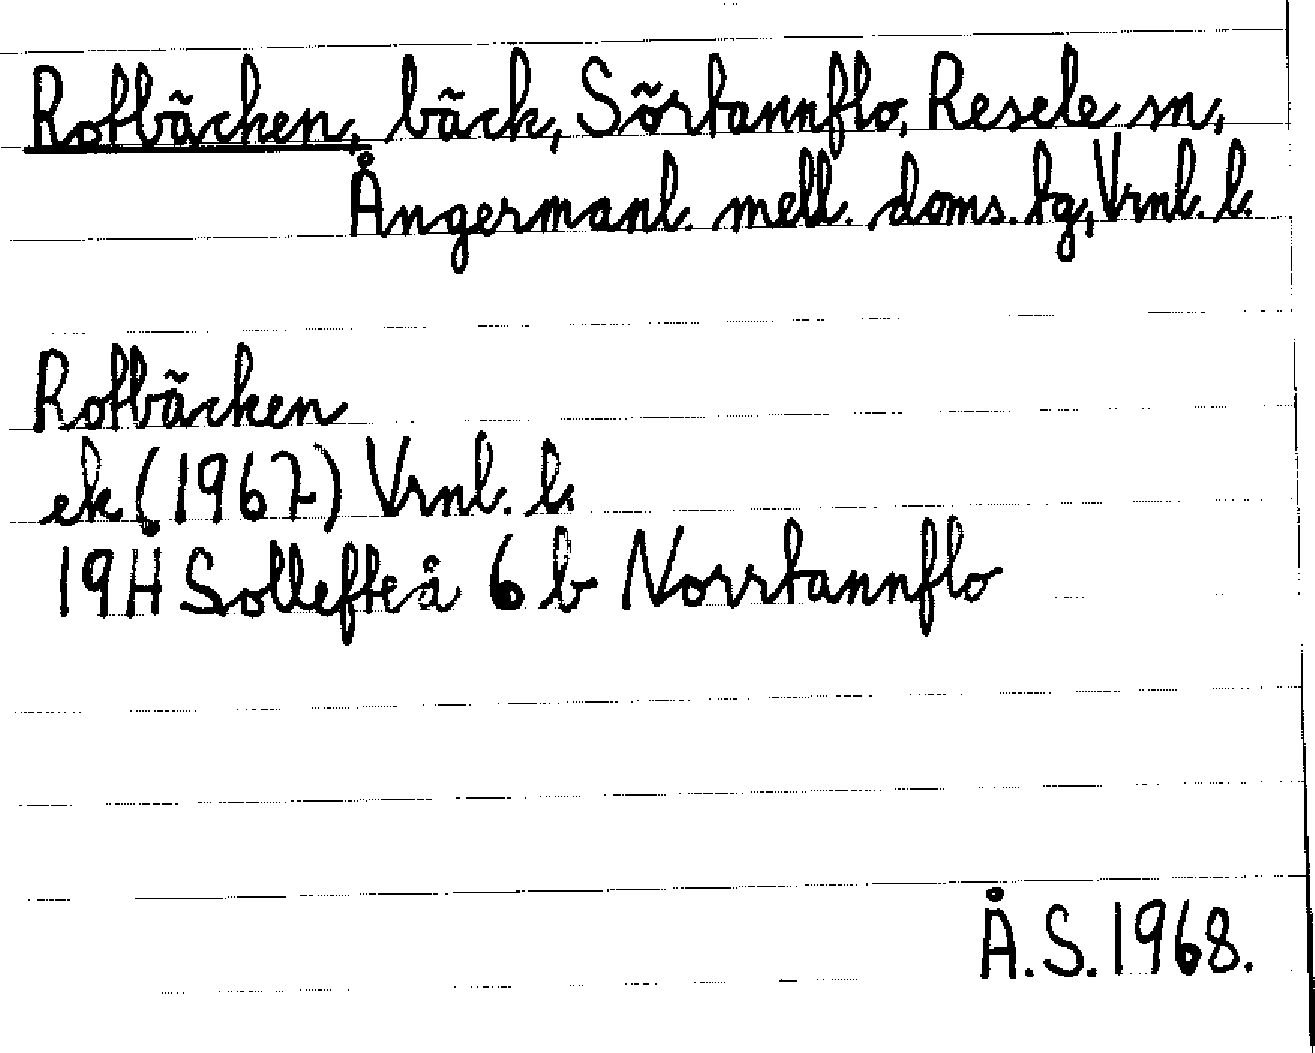 Rotbäcken, bäck, Sörtannflo, Resele sn,
Ångermanl. mell. doms. tg, Vrnl. l.
Rotbäcken
ek (1967) Vrnl. l.
19H Sollefteå 6 b Norrtannflo
Å.S. 1968.